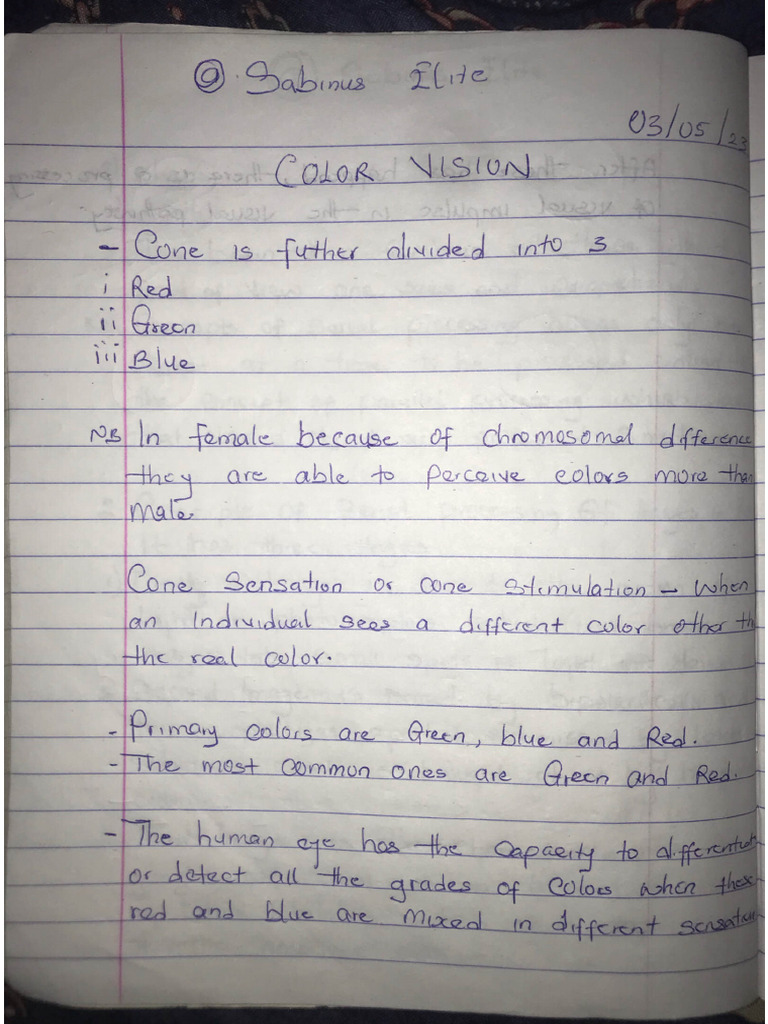 @ Sabinus Elite
03/05/23
COLOR VISION
- Cone is futher divided into 3
i Red
ii Green
iii Blue
NB In female because of chromosomal difference
they are able to perceive colors more than
male.
Cone Sensation or cone stimulation - when
an individual sees a different color other th
the real color.
- Primary colors are Green, blue and Red.
- The most common ones are Green and Red.
- The human eye has the capacity to differentiat
or detect all the grades of colors when these
red and blue are mixed in different sensation